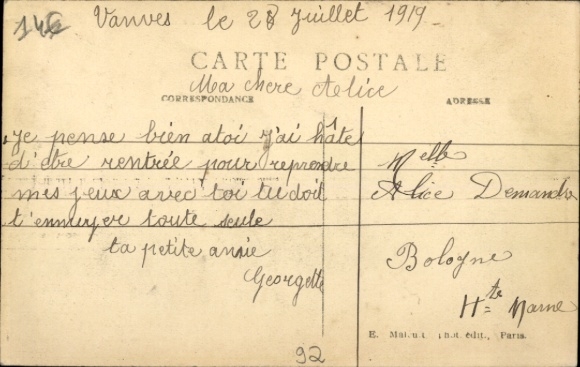 146
Vanves le 28 Juillet 1919
CARTE POSTALE
Ma chere Aelice
CORRESPONDANCE
ADRESSE
Je pense bien atoi j'ai hâte
d'etre rentrée pour reprendre
mes jeux avec toi tu doit
t'ennuyer toute seule
ta petite amie
Georgette
Melle
Alice
Bologne
Hte Marne
E. phot. édit., Paris.
92